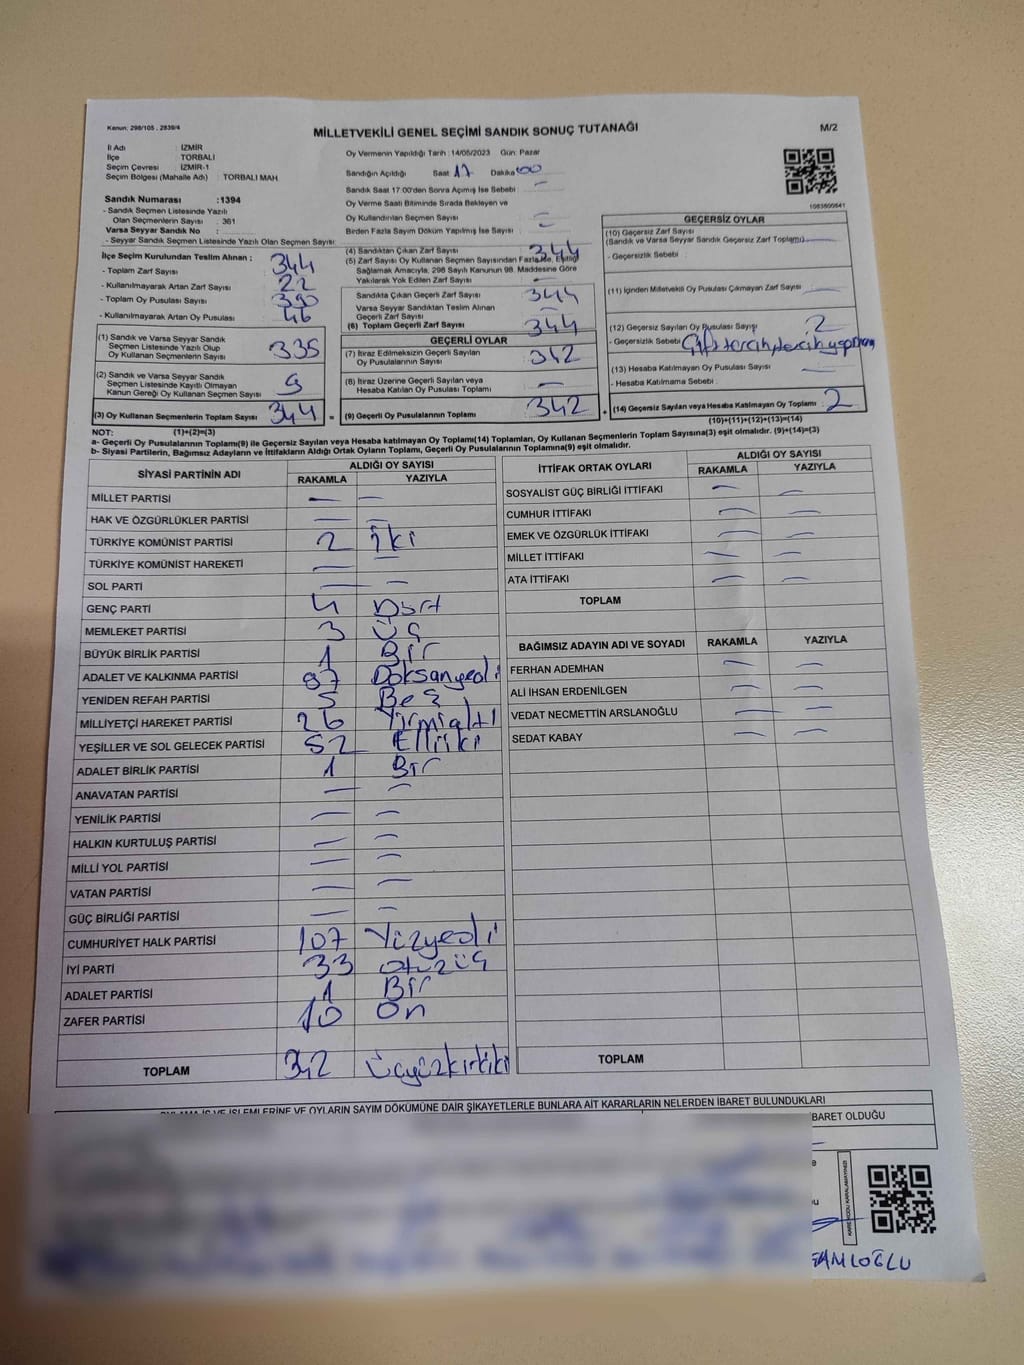 Kanun: 298/105 , 2839/4
MİLLETVEKİLİ GENEL SEÇİMİ SANDIK SONUÇ TUTANAĞI
M/2
İl Adı : İZMİR
İlçe TORBALI
Seçim Çevresi : İZMİR-1
Seçim Bölgesi (Mahalle Adı) : TORBALI MAH.
Oy Vermenin Yapıldığı Tarih :14/05/2023 Gün: Pazar
Sandığın Açıldığı Saat 17 Dakika 00
Sandık Saat 17:00'den Sonra Açımış İse Sebebi :
Oy Verme Saati Bitiminde Sırada Bekleyen ve
Oy Kullandırılan Seçmen Sayısı :
Birden Fazla Sayım Döküm Yapılmış İse Sayısı :
Sandık Numarası :1394
- Sandık Seçmen Listesinde Yazılı
Olan Seçmenlerin Sayısı : 361
Varsa Seyyar Sandık No :
- Seyyar Sandık Seçmen Listesinde Yazılı Olan Seçmen Sayısı:
İlçe Seçim Kurulundan Teslim Alınan :
- Toplam Zarf Sayısı : 344
- Kullanılmayarak Artan Zarf Sayısı : 22
- Toplam Oy Pusulası Sayısı : 390
- Kullanılmayarak Artan Oy Pusulası : 46
(1) Sandık ve Varsa Seyyar Sandık
Seçmen Listesinde Yazılı Olup
Oy Kullanan Seçmenlerin Sayısı : 335
(2) Sandık ve Varsa Seyyar Sandık
Seçmen Listesinde Kayıtlı Olmayan
Kanun Gereği Oy Kullanan Seçmen Sayısı : 9
(3) Oy Kullanan Seçmenlerin Toplam Sayısı : 344
(1)+(2)=(3)
(4) Sandıktan Çıkan Zarf Sayısı : 344
(5) Zarf Sayısı Oy Kullanan Seçmen Sayısından Fazla İse, Eşitliği
Sağlamak Amacıyla, 298 Sayılı Kanunun 98. Maddesine Göre
Yakılarak Yok Edilen Zarf Sayısı :
Sandıkta Çıkan Geçerli Zarf Sayısı : 344
Varsa Seyyar Sandıktan Teslim Alınan
Geçerli Zarf Sayısı :
(6) Toplam Geçerli Zarf Sayısı : 344
GEÇERLİ OYLAR
(7) İtiraz Edilmeksizin Geçerli Sayılan
Oy Pusulalarının Sayısı : 342
(8) İtiraz Üzerine Geçerli Sayılan veya
Hesaba Katılan Oy Pusulası Toplamı :
= (9) Geçerli Oy Pusulalarının Toplamı : 342
1083600641
GEÇERSİZ OYLAR
(10) Geçersiz Zarf Sayısı
(Sandık ve Varsa Seyyar Sandık Geçersiz Zarf Toplamı) :
- Geçersizlik Sebebi :
(11) İçinden Milletvekili Oy Pusulası Çıkmayan Zarf Sayısı :
(12) Geçersiz Sayılan Oy Pusulası Sayısı : 2
- Geçersizlik Sebebi :
(13) Hesaba Katılmayan Oy Pusulası Sayısı :
- Hesaba Katılmama Sebebi :
+ (14) Geçersiz Sayılan veya Hesaba Katılmayan Oy Toplamı : 2
(10)+(11)+(12)+(13)=(14)
NOT:
a- Geçerli Oy Pusulalarının Toplamı(9) ile Geçersiz Sayılan veya Hesaba katılmayan Oy Toplamı(14) Toplamları, Oy Kullanan Seçmenlerin Toplam Sayısına(3) eşit olmalıdır. (9)+(14)=(3)
b- Siyasi Partilerin, Bağımsız Adayların ve İttifakların Aldığı Ortak Oyların Toplamı, Geçerli Oy Pusulalarının Toplamına(9) eşit olmalıdır.
SİYASİ PARTİNİN ADI ALDIĞI OY SAYISI
RAKAMLA YAZIYLA
MİLLET PARTİSİ
HAK VE ÖZGÜRLÜKLER PARTİSİ
TÜRKİYE KOMÜNİST PARTİSİ 2 iki
TÜRKİYE KOMÜNİST HAREKETİ
SOL PARTİ
GENÇ PARTİ 4 Dört
MEMLEKET PARTİSİ 3 Üç
BÜYÜK BİRLİK PARTİSİ 1 Bir
ADALET VE KALKINMA PARTİSİ 97 Doksanyedi
YENİDEN REFAH PARTİSİ 5 Beş
MİLLİYETÇİ HAREKET PARTİSİ 26 Yirmialtı
YEŞİLLER VE SOL GELECEK PARTİSİ 52 Elliiki
ADALET BİRLİK PARTİSİ 1 Bir
ANAVATAN PARTİSİ
YENİLİK PARTİSİ
HALKIN KURTULUŞ PARTİSİ
MİLLİ YOL PARTİSİ
VATAN PARTİSİ
GÜÇ BİRLİĞİ PARTİSİ
CUMHURİYET HALK PARTİSİ 107 Yüzyedi
İYİ PARTİ 33 otuzüç
ADALET PARTİSİ 1 Bir
ZAFER PARTİSİ 10 On
TOPLAM 342 Üçyüzkırkiki
İTTİFAK ORTAK OYLARI ALDIĞI OY SAYISI
RAKAMLA YAZIYLA
SOSYALİST GÜÇ BİRLİĞİ İTTİFAKI
CUMHUR İTTİFAKI
EMEK VE ÖZGÜRLÜK İTTİFAKI
MİLLET İTTİFAKI
ATA İTTİFAKI
TOPLAM
BAĞIMSIZ ADAYIN ADI VE SOYADI RAKAMLA YAZIYLA
FERHAN ADEMHAN
ALİ İHSAN ERDENİLGEN
VEDAT NECMETTİN ARSLANOĞLU
SEDAT KABAY
TOPLAM
İŞ VE İŞLEMLERİNE VE OYLARIN SAYIM DÖKÜMÜNE DAİR ŞİKAYETLERLE BUNLARA AİT KARARLARIN NELERDEN İBARET BULUNDUKLARI
BARET OLDUĞU
KARE KODU KARALAMAYINIZ!